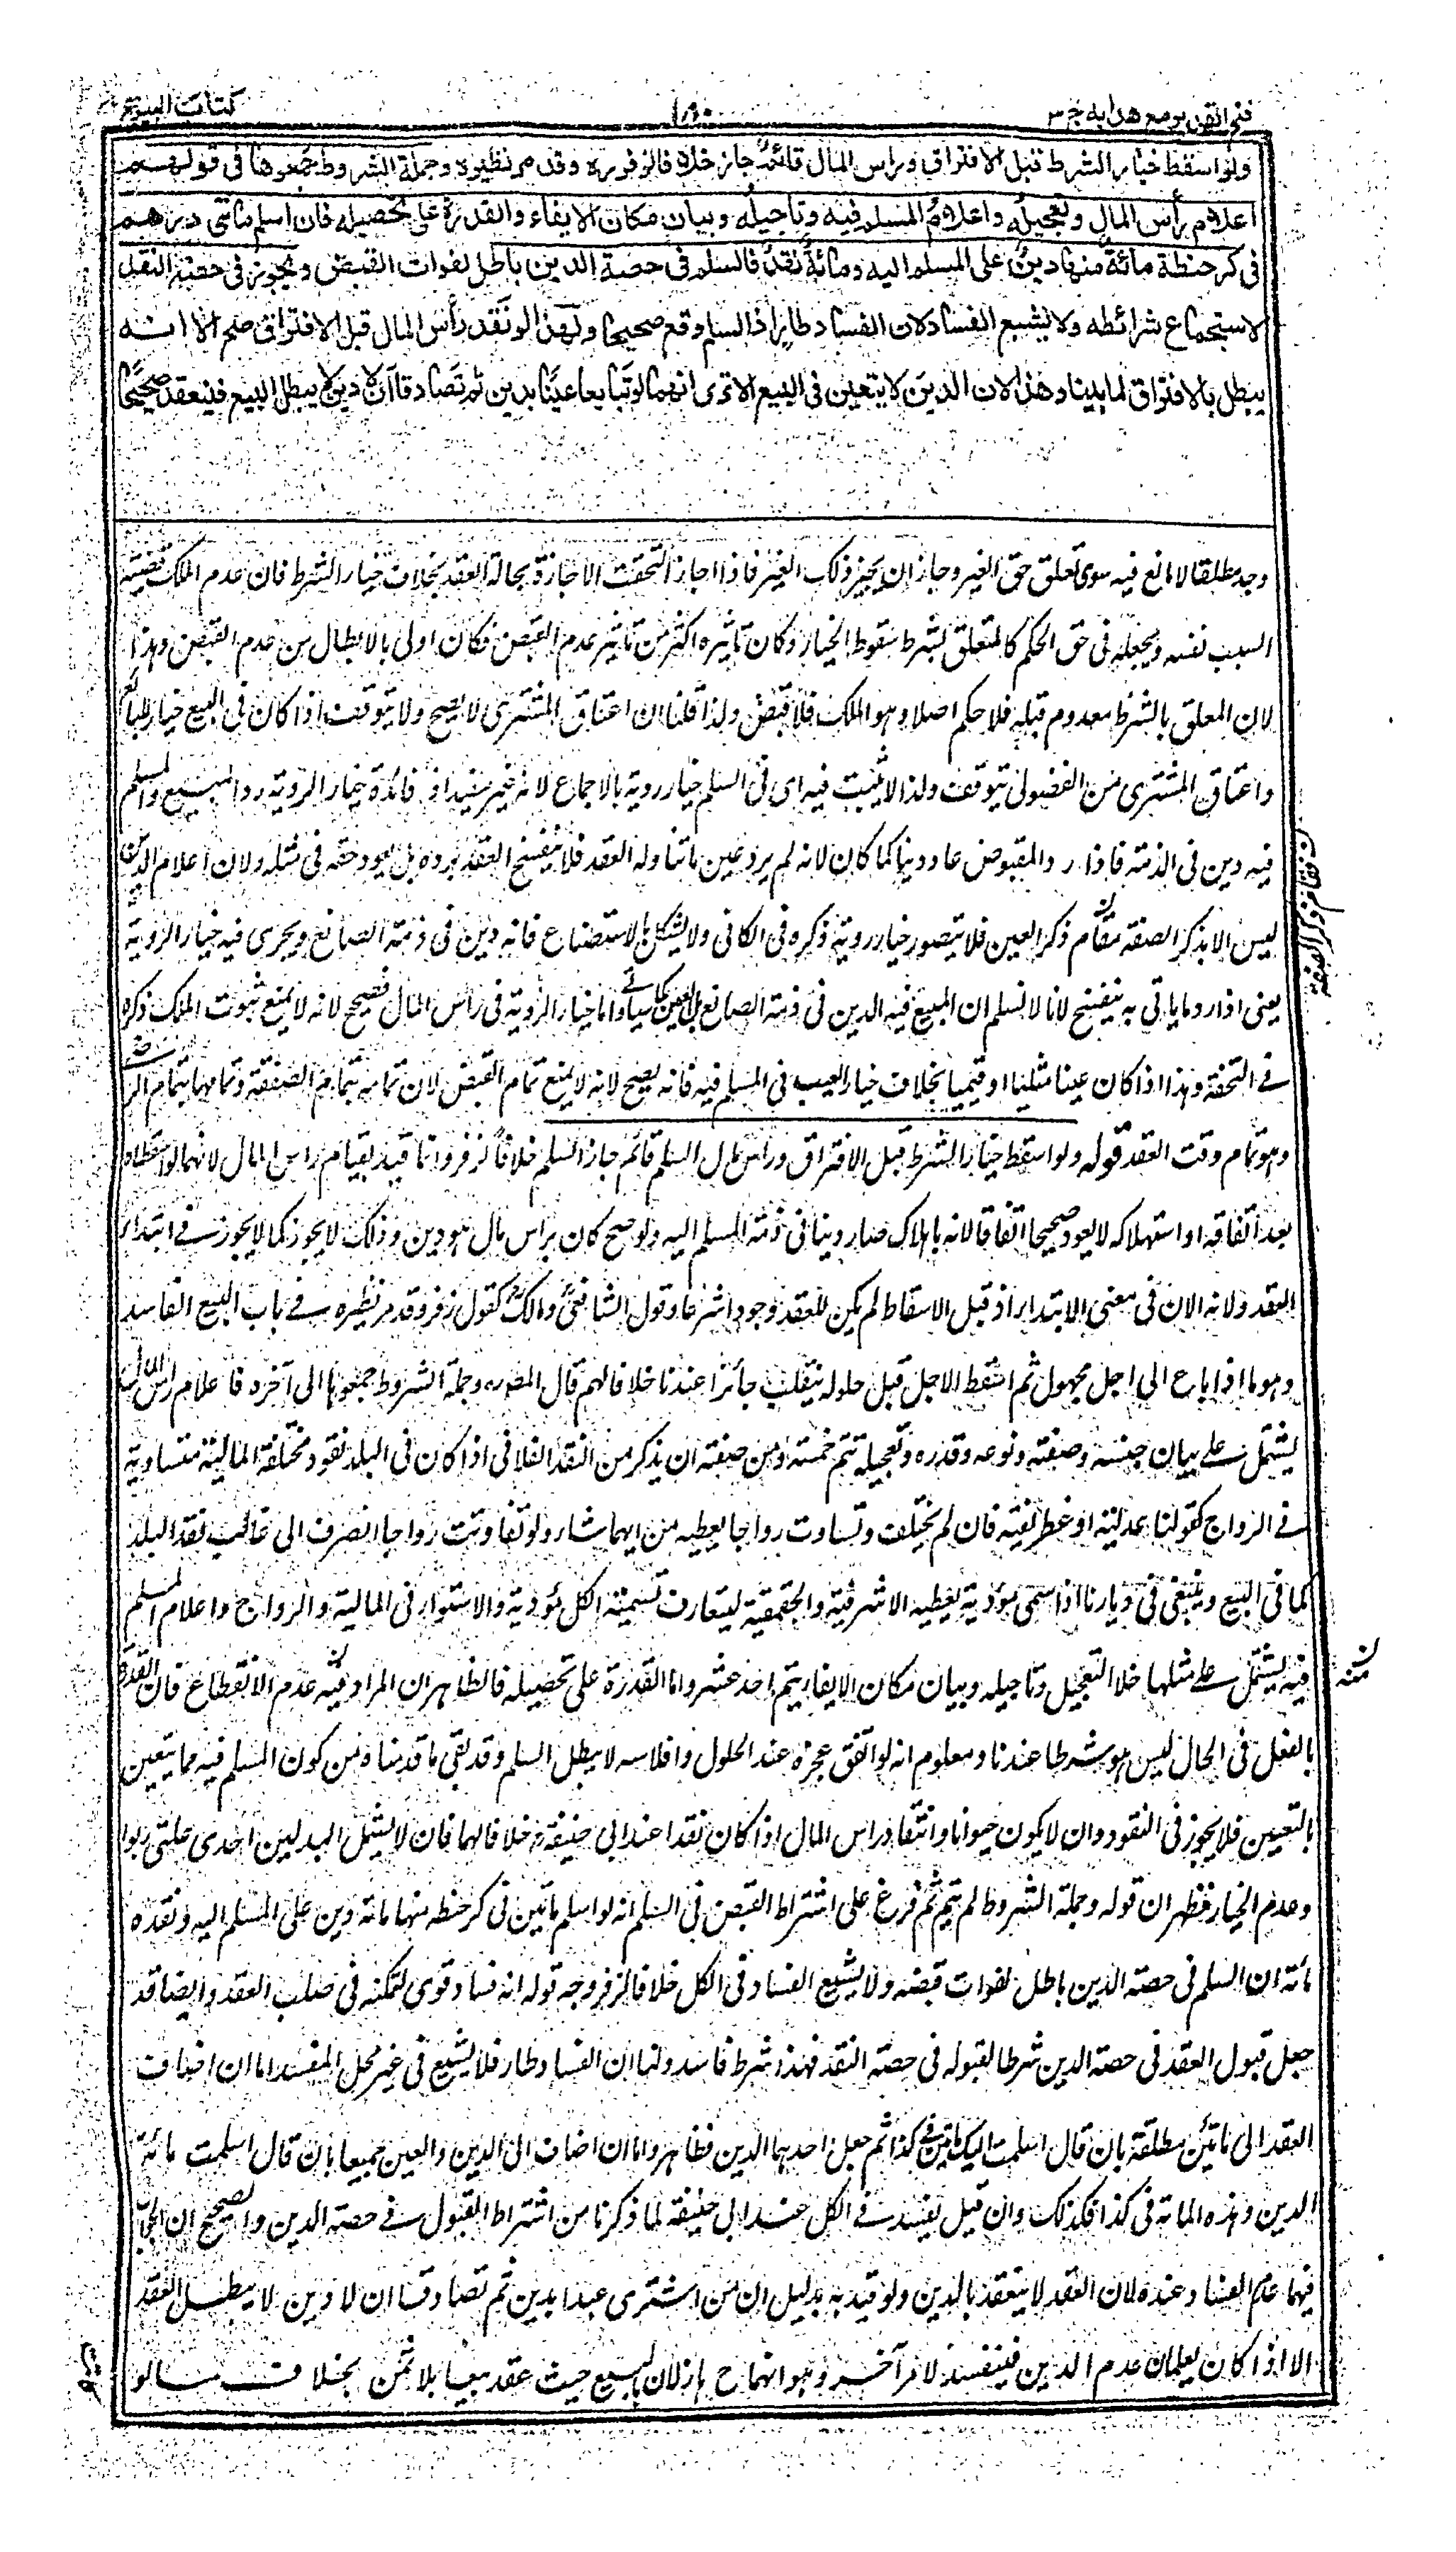 فتح القدير مع هدايه ج ٣
كتاب البيوع
ولو اسقط خيار الشرط قبل الافتراق وراس المال قائم جاز خلافا لزفر وقد مر نظيره وجملة الشروط جمعوها في قولهم
اعلام رأس المال وتعجيله واعلام المسلم فيه وتاجيله وبيان مكان الايفاء والقدرة على تحصيله فان اسلم مائتي درهم
في كر حنطة مائة منها دين على المسلم اليه ومائة نقد فالسلم في حصة الدين باطل لفوات القبض ويجوز في حصة النقد
لاستجماع شرائطه ولا يشيع الفساد لان الفساد طار اذ السلم وقع صحيحا ولهذا لو نقد رأس المال قبل الافتراق صح الا انه
يبطل بالافتراق لما بينا وهذا لان الدين لا يتعين في البيع الا ترى انهما لو تبايعا عينا بدين ثم تصادقا ان لا دين لا يبطل البيع فينعقد صحيحا
وجد مطلقا لا مانع فيه سوى تعلق حق الغير وجاز ان يجيز ذلك الغير فاذا اجاز التحقت الاجازة بحالة العقد بخلاف خيار الشرط فان عدم الملك قضية
السبب نفسه ويجعله في حق الحكم كالمتعلق بشرط سقوط الخيار وكان تاثيره اكثر من تاثير عدم القبض فكان اولى بالابطال من عدم القبض وهذا
لان المعلق بالشرط معدوم قبله فلا حكم اصلا وهو الملك فلا قبض ولذا قلنا ان اعتاق المشترى لا يصح ولا يتوقف اذا كان في البيع خيار للبائع
واعتاق المشترى من الفضولى يتوقف ولذا لا يثبت فيه اى في السلم خيار روية بالاجماع لانه غير مفيد اذ فائدة خيار الروية رد المبيع والمسلم
فيه دين في الذمة فاذا رد المقبوض عاد دينا كما كان لانه لم يرد عين ما تناوله العقد فلا ينفسخ العقد برده بل يعود حقه في مثله ولان اعلام الدين
ليس الا بذكر الصفة مقام ذكر العين فلا يتصور خيار روية ذكره في الكافى ولا يشكل بالاستصناع فانه دين في ذمة الصانع ويجرى فيه خيار الروية
يعنى اذا رد ما ياتى به ينفسخ لانا لا نسلم ان المبيع فيه الدين في ذمة الصانع بل العين كما سياتى واما خيار الروية في راس المال فصحيح لانه لا يمنع ثبوت الملك ذكره
في التحفة وهذا اذا كان عينا مثليا او قيميا بخلاف خيار العيب في المسلم فيه فانه يصح لانه لا يمنع تمام القبض لان تمامه بتمام الصفقة وتمامها بتمام الرضى
وهو تمام وقت العقد قوله ولو اسقط خيار الشرط قبل الافتراق وراس مال السلم قائم جاز السلم خلافا لزفر وانما قيد بقيام راس المال لانهما لو اسقطاه
بعد انفاقه او استهلاكه لا يعود صحيحا اتفاقا لانه بالهلاك صار دينا في ذمة المسلم اليه ولو صح كان براس مال هو دين وذلك لا يجوز كما لا يجوز في ابتداء
العقد ولانه الان في معنى الابتداء اذ قبل الاسقاط لم يكن للعقد وجود شرعا وقول الشافعى ومالك كقول زفر وقد مر نظيره في باب البيع الفاسد
وهو ما اذا باع الى اجل مجهول ثم اسقط الاجل قبل حلوله ينقلب جائزا عندنا خلافا لهم قال المصره وجملة الشروط جمعوها الى آخره فاعلام راس المال
يشتمل على بيان جنسه وصفته ونوعه وقدره وتعجيله تتم خمسة ومن صفته ان يذكر من النقد الفلانى اذا كان في البلد نقود مختلفة المالية متساوية
في الرواج كقولنا بعدلية او غطريفية فان لم يختلف وتساوت رواجا يعطيه من ايهما شاء ولو تفاوتت رواجا انصرف الى غالب نقد البلد
كما في البيع وينبغى في ديارنا اذا سمى مؤدية يعطيه الاشرفية والجقمقية ليتعارف تسمية الكل مؤدية والاستواء في المالية والرواج واعلام المسلم
فيه يشتمل على مثلها خلا التعجيل وتاجيله وبيان مكان الايفاء يتم احد عشر واما القدرة على تحصيله فالظاهر ان المراد منه عدم الانقطاع فان القدرة
بالفعل في الحال ليس هو شرطا عندنا ومعلوم انه لو اتفق عجزه عند الحلول وافلاسه لا يبطل السلم وقد بقى ما قدمناه من كون المسلم فيه مما يتعين
بالتعيين فلا يجوز في النقود وان لا يكون حيوانا وانتقاد راس المال اذا كان نقدا عند ابى حنيفة رح خلافا لهما فان لا يشمل البدلين احدى علتى ربوا
وعدم الخيار فظهر ان قوله وجملة الشروط لم يتم ثم فرع على اشتراط القبض في السلم انه لو اسلم مائتين في كر حنطة منها مائة دين على المسلم اليه ونقده
مائة ان السلم في حصة الدين باطل لفوات قبضه ولا يشيع الفساد في الكل خلافا لزفر وجه قوله انه فساد قوى لتمكنه في صلب العقد وايضا قد
جعل قبول العقد في حصة الدين شرطا لقبوله في حصة النقد فهذا شرط فاسد ولنا ان الفساد طار فلا يشيع في غير محل المفسد اما ان اضاف
العقد الى مائتين مطلقة بان قال اسلمت اليك مائتين في كذا ثم جعل احدهما الدين فظاهر واما ان اضاف الى الدين والعين جميعا بان قال اسلمت مائة
الدين وهذه المائة في كذا فكذلك وان قيل يفسد في الكل عند ابى حنيفة لما ذكرنا من اشتراط القبول في حصة الدين والصحيح ان الجواب
فيهما عدم الفساد وعنده لان العقد لا ينعقد بالدين ولو قيد به بدليل ان من اشترى عبدا بدين ثم تصادقا ان لا دين لا يبطل العقد
الا اذا كان يعلمان عدم الدين فيفسد لامر آخر وهو انهما ح هازلان بالبيع حيث عقد بيعا بلا ثمن بخلاف ما لو